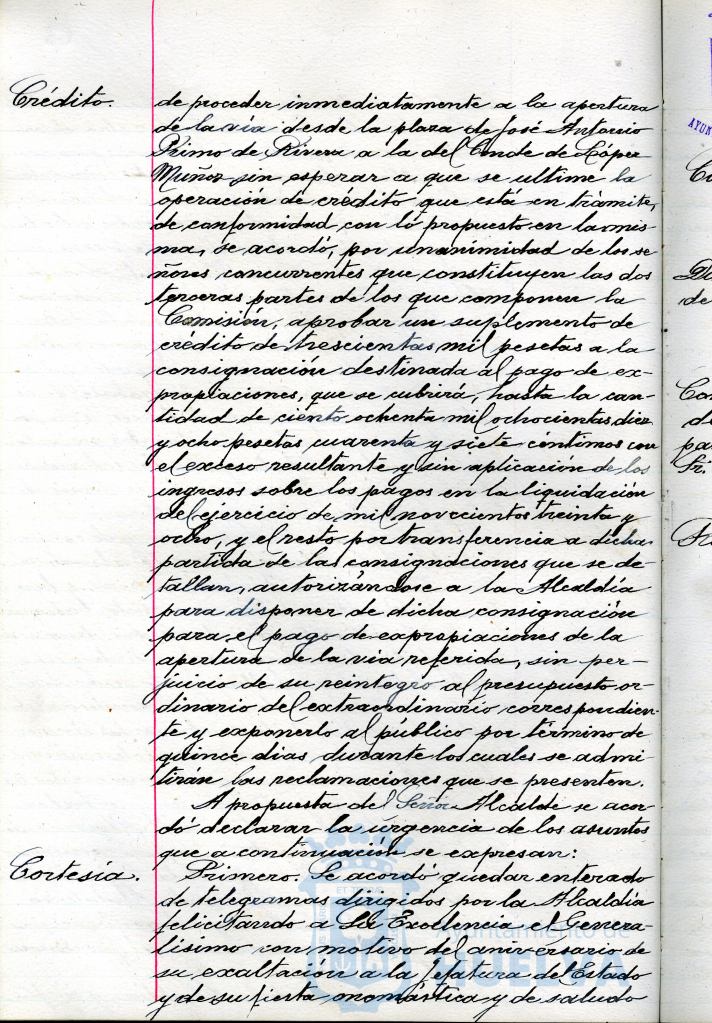 Crédito.
de proceder inmediatamente a la apertura
de la via desde la plaza de José Antonio
Primo de Rivera a la del Conde de López
Muñoz sin esperar a que se ultime la
operación de crédito que está en trámite,
de conformidad con lo propuesto en la mis-
ma, se acordó, por unanimidad de los se-
ñores concurrentes que constituyen las dos
terceras partes de los que componen la
Comisión, aprobar un suplemento de
crédito de trescientas mil pesetas a la
consignación destinada al pago de ex-
propiaciones, que se cubrirá, hasta la can-
tidad de ciento ochenta mil ochocientas diez
y ocho pesetas cuarenta y siete centimos con
el exceso resultante y sin aplicación de los
ingresos sobre los pagos en la liquidación
del ejercicio de mil novecientos treinta y
ocho, y el resto por transferencia a dicha
partida de las consignaciones que se de-
tallan, autorizándose a la Alcaldía
para disponer de dicha consignación
para el pago de expropiaciones de la
apertura de la via referida, sin per-
juicio de su reintegro al presupuesto or-
dinario del extraordinario correspondien-
te y exponerlo al público por término de
quince dias durante los cuales se admi-
tirán las reclamaciones que se presenten.
A propuesta del Señor Alcalde se acor-
dó declarar la urgencia de los asuntos
que a continuación se expresan:
Cortesía.
Primero. Se acordó quedar enterado
de telegramas dirigidos por la Alcaldía
felicitando a Su Excelencia el Genera-
lisimo con motivo del aniversario de
su exaltación a la Jefatura del Estado
y de su fiesta onomástica y de saludo
Ayuntamiento de
HUELVA